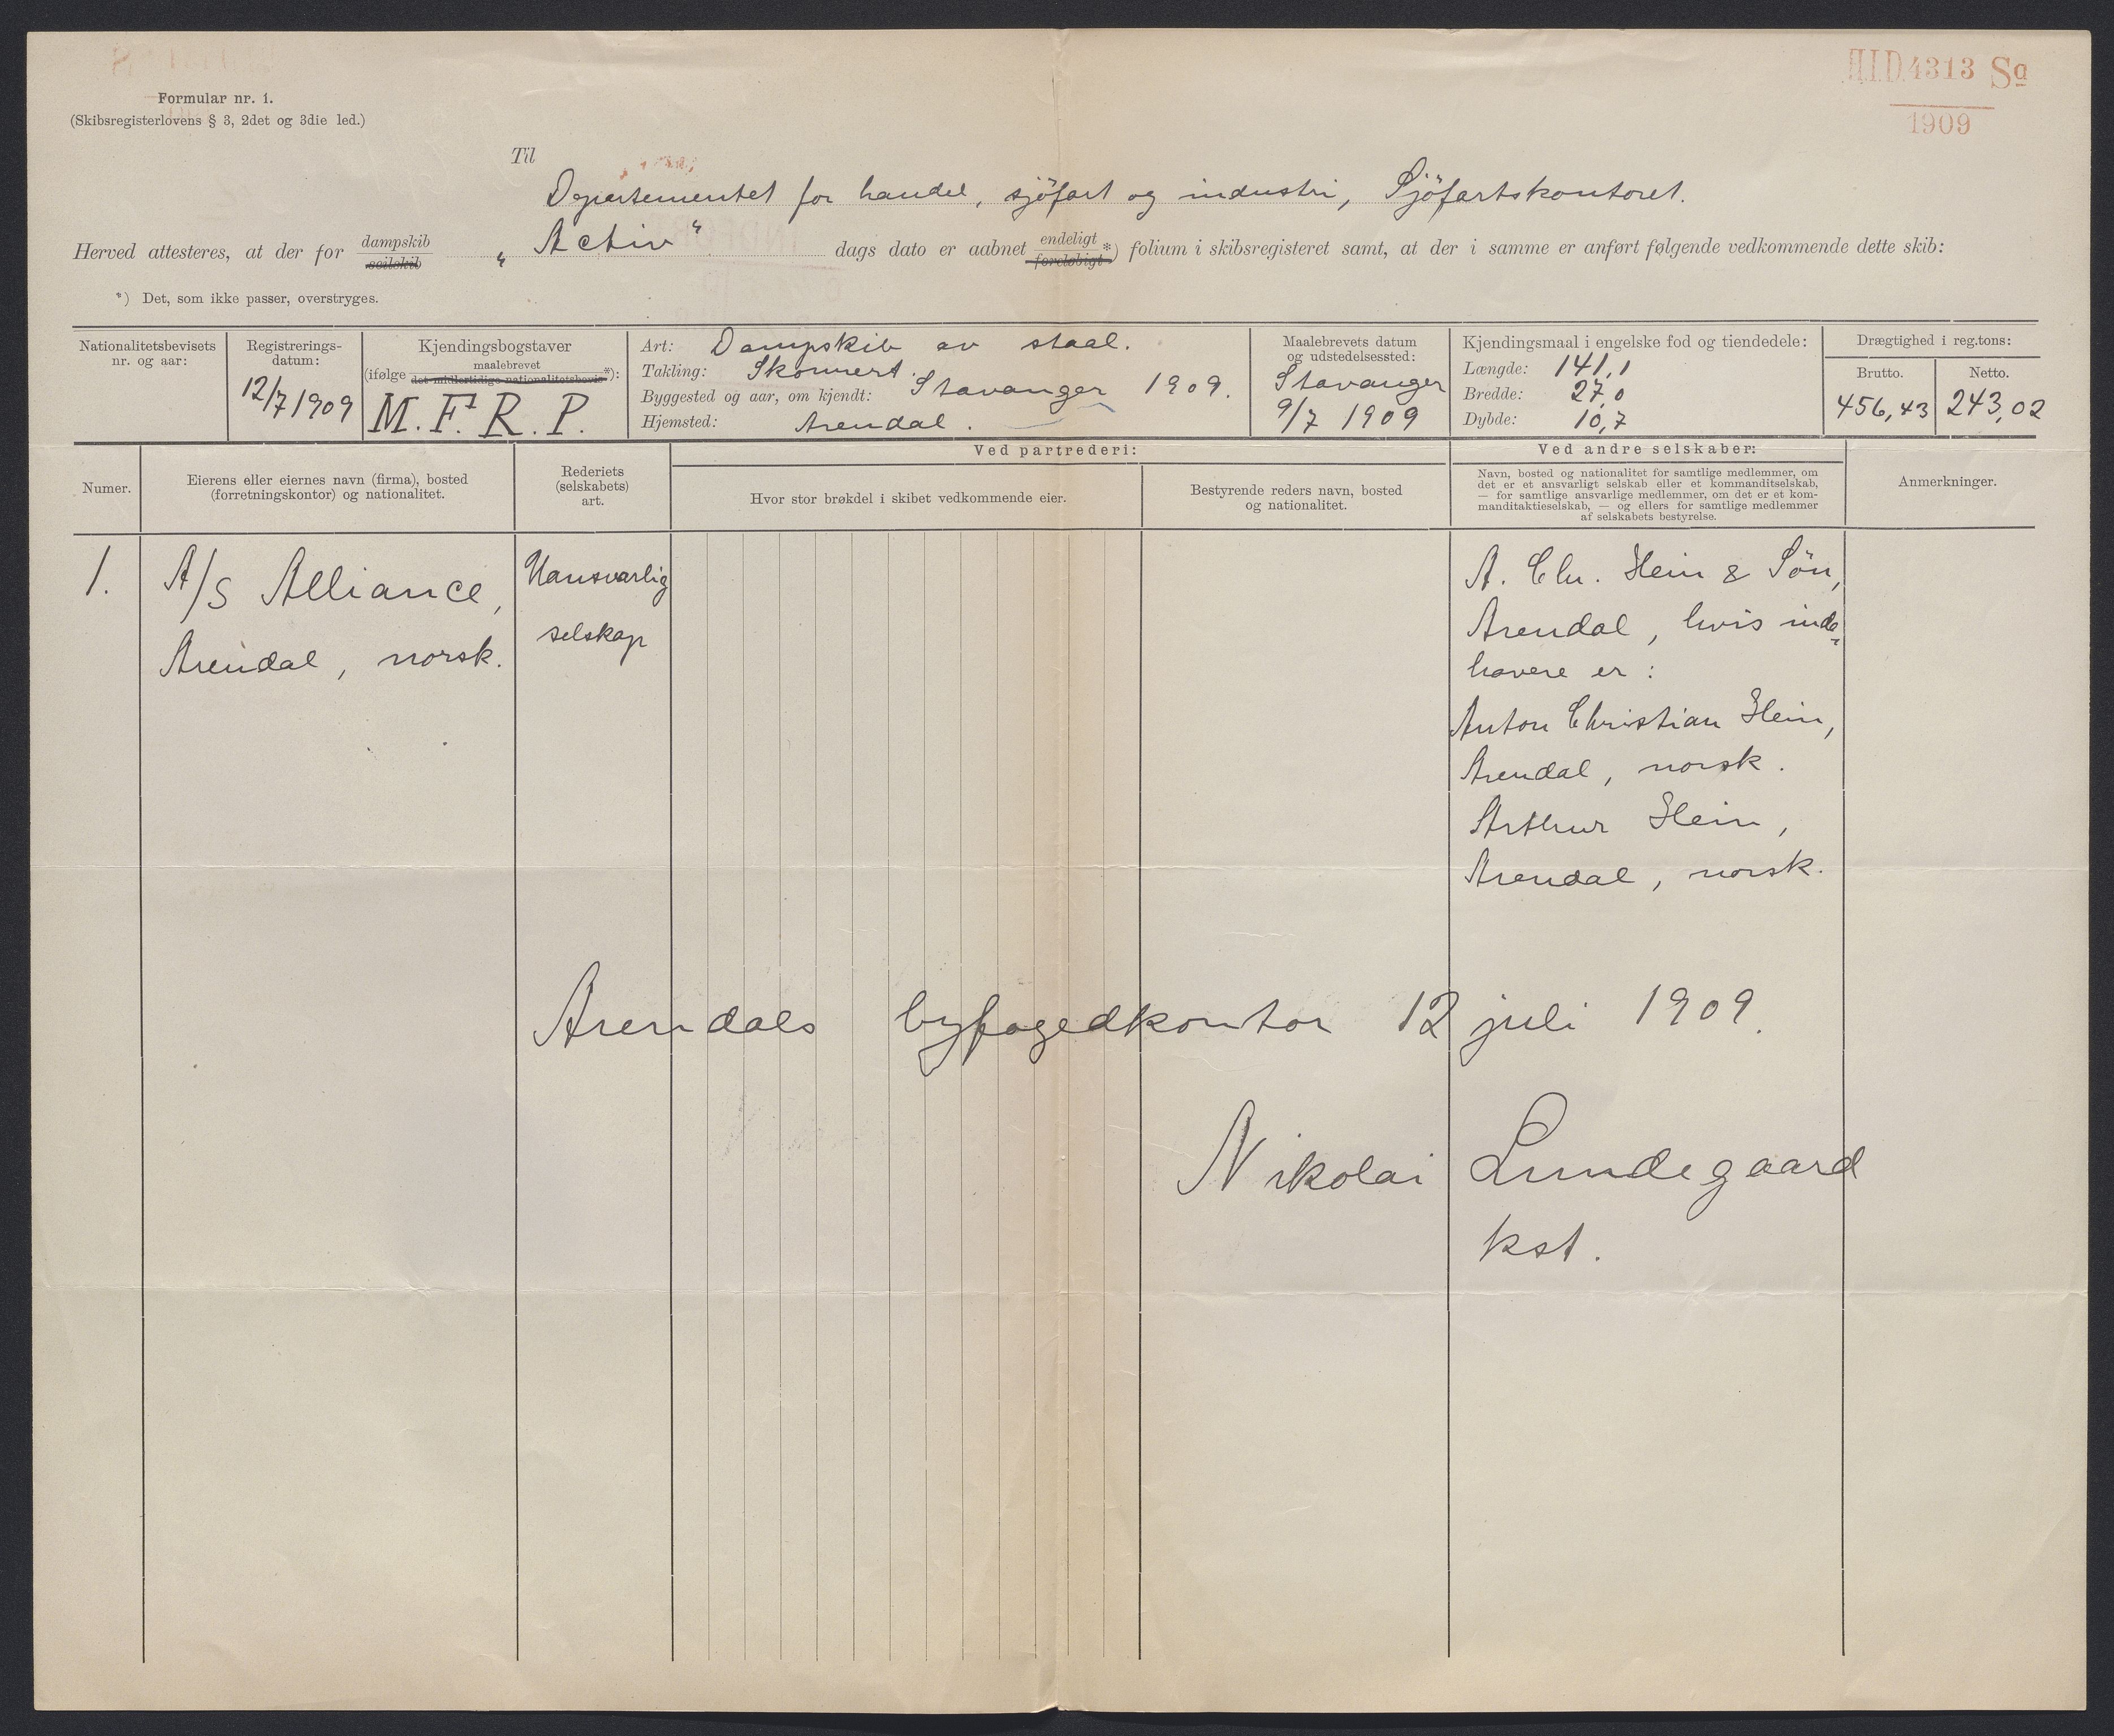 H.I.D. 4313 Sa
1909
Formular nr. 1.
(Skibsregisterlovens § 3, 2det og 3die led.)
Til
Departementet for handel, sjöfart og industri, Sjöfartskontoret.
Herved attesteres, at der for dampskib seilskib „Activ“ dags dato er aabnet endeligt foreløbigt *) folium i skibsregisteret samt, at der i samme er anført følgende vedkommende dette skib:
*) Det, som ikke passer, overstryges.
Nationalitetsbevisets
nr. og aar:
Registrerings-
datum:
12/7 1909
Kjendingsbogstaver
(ifølge maalebrevet det midlertidige nationalitetsbevis *):
M. F. R. P.
Art: Dampskib av staal.
Takling: Skonnert.
Byggested og aar, om kjendt: Stavanger 1909.
Hjemsted: Arendal.
Maalebrevets datum
og udstedelsessted:
Stavanger
9/7 1909
Kjendingsmaal i engelske fod og tiendedele:
Længde: 141,1
Bredde: 27,0
Dybde: 10,7
Drægtighed i reg.tons:
Brutto. Netto.
456,43 243,02
Numer.
Eierens eller eiernes navn (firma), bosted
(forretningskontor) og nationalitet.
Rederiets
(selskabets)
art.
Ved partrederi:
Hvor stor brøkdel i skibet vedkommende eier.
Bestyrende reders navn, bosted
og nationalitet.
Ved andre selskaber:
Navn, bosted og nationalitet for samtlige medlemmer, om
det er et ansvarligt selskab eller et kommanditselskab,
— for samtlige ansvarlige medlemmer, om det er et kom-
manditaktieselskab, — og ellers for samtlige medlemmer
af selskabets bestyrelse.
Anmerkninger.
1.
A/S Alliance,
Arendal, norsk.
Uansvarlig
selskap
A. Chr. Hein & Sön,
Arendal, hvis inde-
havere er:
Anton Christian Hein,
Arendal, norsk.
Arthur Hein,
Arendal, norsk.
Arendals byfogedkontor 12 juli 1909.
Nikolai Lundegaard
kst.